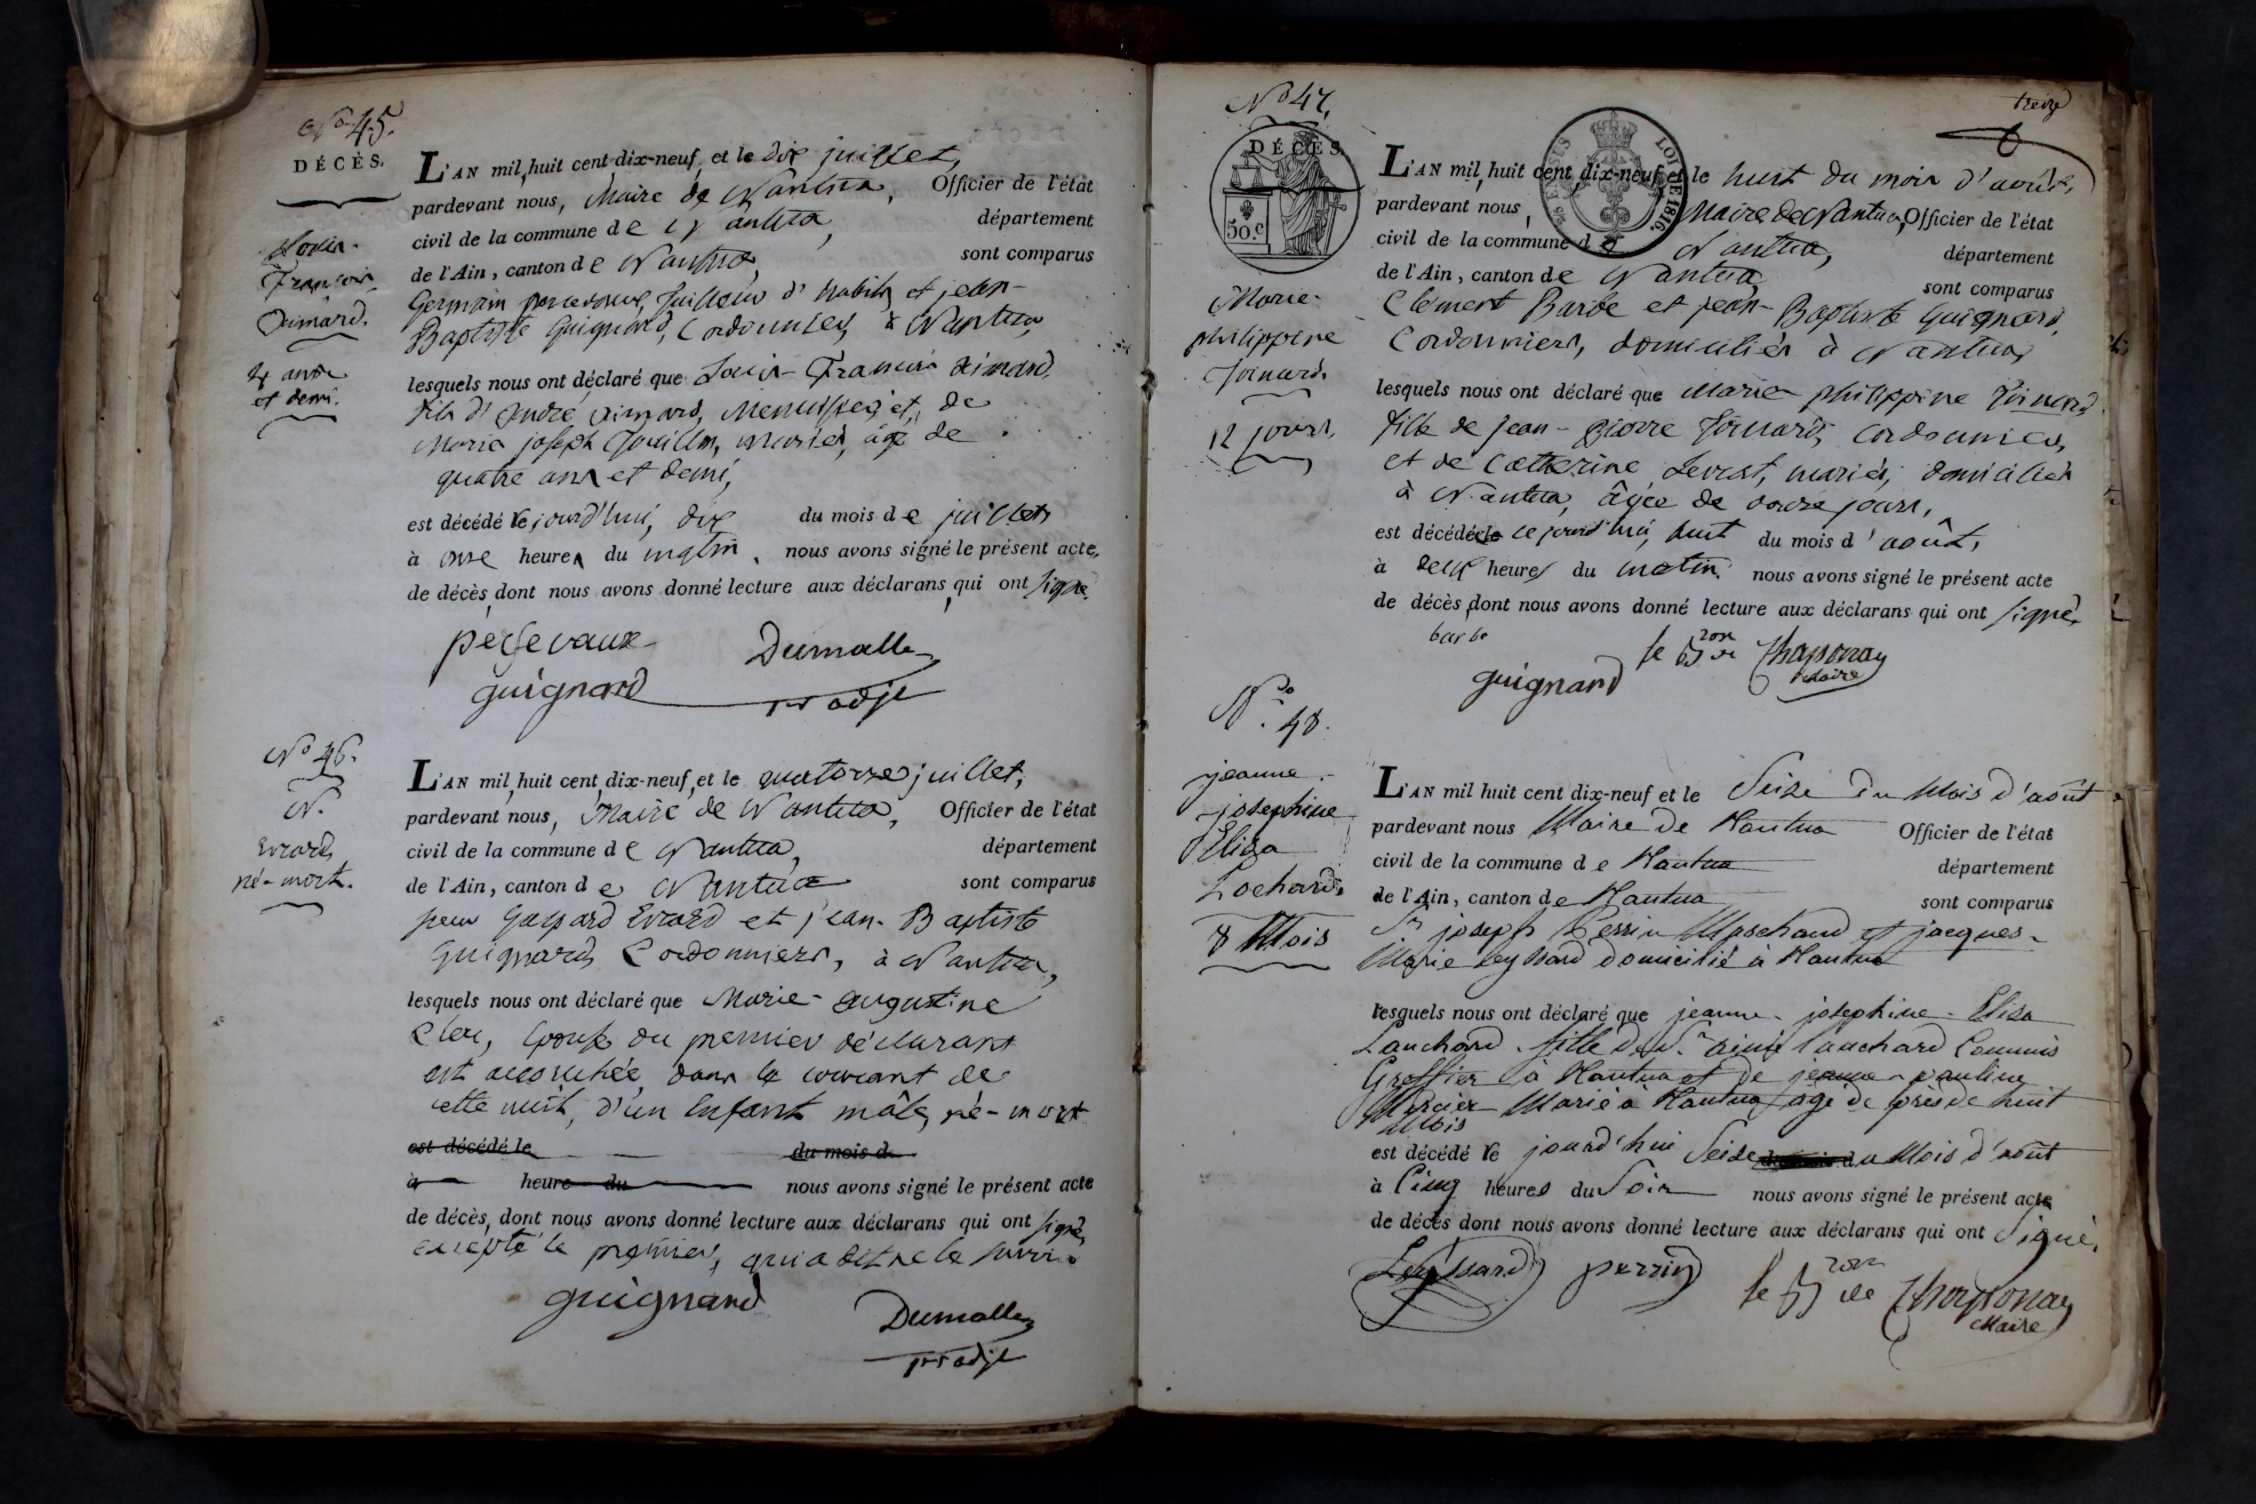 No 45.
DÉCÈS.
Louis-
François
Aimard.
4 ans
et demi.
L'AN mil, huit cent, dix-neuf, et le dix juillet,
pardevant nous, Maire de Nantua, Officier de l'état
civil de la commune de Nantua, département
de l'Ain, canton de Nantua, sont comparus
Germain tailleur d'habits, et jean-
Baptiste Guignard, Cordonnier, à Nantua,
lesquels nous ont déclaré que Louis-François Aimard,
fils d'André Aimard, Menuisier, et de
Marie joseph mariés, âgé de
quatre ans et demi,
est décédé le jourd'hui, dix du mois de juillet,
à onze heures du matin, nous avons signé le présent acte,
de décès, dont nous avons donné lecture aux déclarans, qui ont signé.
percevaux
Dumolle
guignard
1er adjt
No 46.
N.
Evrard,
né-mort.
L'AN mil, huit cent, dix-neuf, et le quatorze juillet,
pardevant nous, Maire de Nantua, Officier de l'état
civil de la commune de Nantua, département
de l'Ain, canton de Nantua sont comparus
sieur Gaspard Evrard et jean-Baptiste
Guignard, Cordonniers, à Nantua,
lesquels nous ont déclaré que Marie-augustine
Clerc, épouse du premier déclarant
est accouchée, dans le courant de
cette nuit, d'un Enfant mâle, né-mort
est décédé le du mois d
à heure du nous avons signé le présent acte
de décès, dont nous avons donné lecture aux déclarans qui ont signé,
excepté le premier, qui a dit ne le savoir.
guignard
Dumolle
1er adjt
treize
No 47.
DÉCÈS.
50.c
LOI DE 1816.
Marie-
philippine
Joinard.
12 jours.
L'AN mil, huit cent, dix-neuf, et le huit du mois d'août,
pardevant nous, Maire de Nantua, Officier de l'état
civil de la commune de Nantua, département
de l'Ain, canton de Nantua sont comparus
Clément Barbe et jean-Baptiste Guignard,
Cordonniers, domiciliés à Nantua,
lesquels nous ont déclaré que Marie philippine Joinard
fille de jean-pierre Joinard, cordonnier,
et de Catherine Levrat, mariés, domiciliés
à Nantua, âgée de douze jours,
est décédée le ce jourd'hui, huit du mois d'août,
à deux heures du matin. nous avons signé le présent acte
de décès, dont nous avons donné lecture aux déclarans qui ont signé.
barbe
le Bon de Chaponay
Maire
guignard
No. 48.
jeanne-
josephine
Eliza
Lochard.
8 Mois
L'AN mil huit cent dix-neuf et le Seize du Mois d'août
pardevant nous Maire de Nantua Officier de l'état
civil de la commune de Nantua département
de l'Ain, canton de Nantua sont comparus
Sr joseph Perrin Marchand et jacques-
Marie Leyssard domicilié à Nantua
lesquels nous ont déclaré que jeanne-josephine-Eliza
Lauchard fille du Sr aimé Lauchard Commis
Greffier à Nantua et de jeanne-pauline
Mercier Marié à Nantua age de près de huit
Mois
est décédé le jourd'hui Seize du Mois d'août
à Cinq heures du Soir nous avons signé le présent acte
de décès dont nous avons donné lecture aux déclarans qui ont Signé.
Leyssard perrin le Bon de Chaponay
Maire